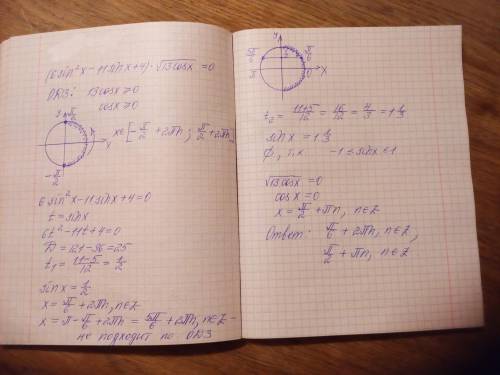 (6sin²x-11sinx+4)·√13cosx=0
ОДЗ: 13cosx≥0
cosx≥0
y π/2
x
-π/2
x∈[-π/2+2πn; π/2+2πn]
6sin²x-11sinx+4=0
t=sinx
6t²-11t+4=0
D=121-96=25
t₁=11-5/12=1/2
sinx=1/2
x=π/6+2πn, n∈Z
x=π-π/6+2πn=5π/6+2πn, n∈Z -
не подходит по ОДЗ
y
5π/6 1/2 π/6
π 0 x
t₂=11+5/12=16/12=4/3=1 1/3
sinx=1 1/3
∅, т.к -1≤sinx≤1
√13cosx=0
cosx=0
x=π/2+πn, n∈Z
Ответ: π/6+2πn, n∈Z,
π/2+πn, n∈Z